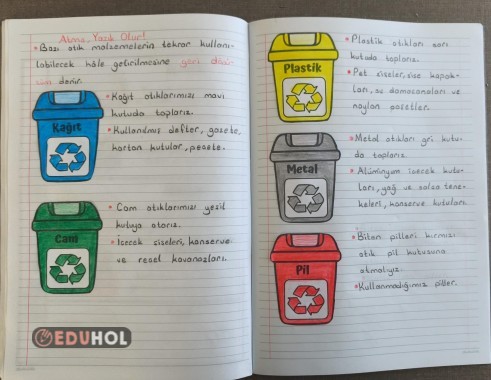 Atma, Yazık Olur!
• Bazı atık malzemelerin tekrar kullanı-
labilecek hâle getirilmesine geri dönü-
şüm denir.
Kağıt
• Kağıt atıklarımızı mavi
kutuda toplarız.
• Kullanılmış defter, gazete,
karton kutular, peçete.
Cam
• Cam atıklarımızı yeşil
kutuya atarız.
• İçecek şişeleri, konserve
ve reçel kavanozları.
EDUHOL
Plastik
• Plastik atıkları sarı
kutuda toplarız.
• Pet şişeler, şişe kapak-
ları, su damacanaları ve
naylon poşetler.
Metal
• Metal atıkları gri kutu-
da toplarız.
• Alüminyum içecek kutu-
ları, yağ ve salça tene-
keleri, konserve kutuları.
Pil
• Biten pilleri kırmızı
atık pil kutusuna
atmalıyız.
• Kullanmadığımız piller.